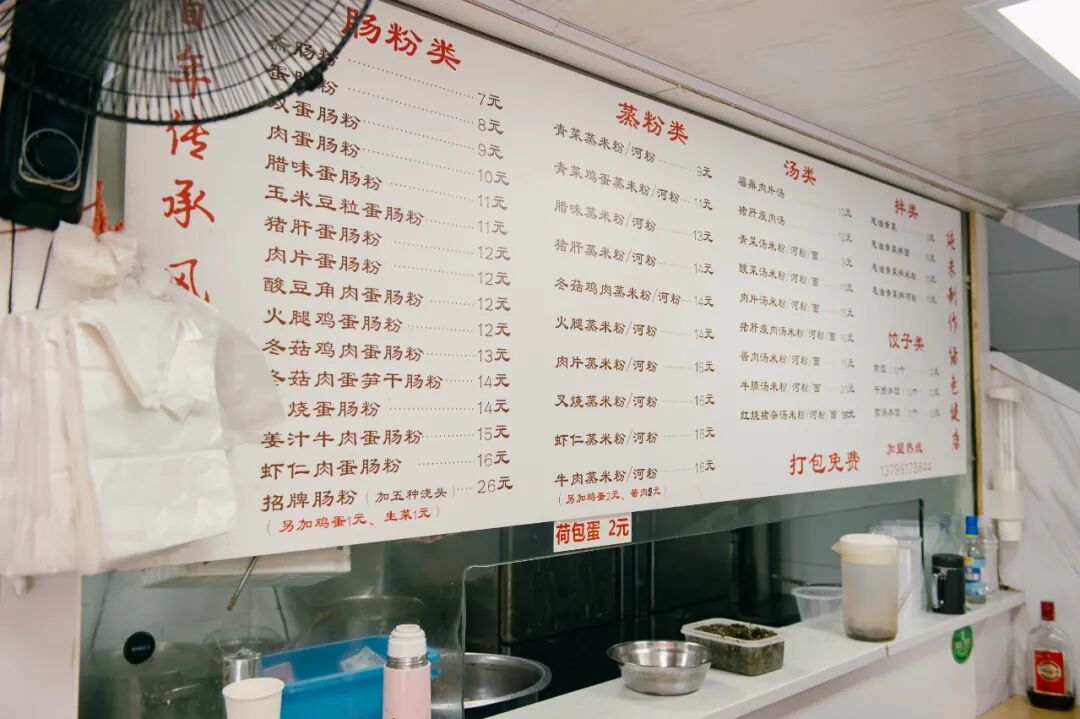 百年传承风
肠粉类
素肠粉 7元
蛋肠粉 8元
双蛋肠粉 9元
肉蛋肠粉 10元
腊味蛋肠粉 11元
玉米豆粒蛋肠粉 11元
猪肝蛋肠粉 12元
肉片蛋肠粉 12元
酸豆角肉蛋肠粉 12元
火腿鸡蛋肠粉 12元
冬菇鸡肉蛋肠粉 13元
冬菇肉蛋笋干肠粉 14元
烧蛋肠粉 14元
姜汁牛肉蛋肠粉 15元
虾仁肉蛋肠粉 16元
招牌肠粉（加五种浇头） 26元
（另加鸡蛋1元、生菜1元）
蒸粉类
青菜蒸米粉/河粉 9元
青菜鸡蛋蒸米粉/河粉 11元
腊味蒸米粉/河粉 13元
猪肝蒸米粉/河粉 14元
冬菇鸡肉蒸米粉/河粉 14元
火腿蒸米粉/河粉 14元
肉片蒸米粉/河粉 15元
叉烧蒸米粉/河粉 16元
虾仁蒸米粉/河粉 16元
牛肉蒸米粉/河粉 16元
（另加鸡蛋2元、酱肉9元）
荷包蛋 2元
汤类
福鼎肉片汤
猪肝瘦肉汤
青菜汤米粉/河粉/面
酸菜汤米粉/河粉/面
肉片汤米粉/河粉/面
猪肝瘦肉汤米粉/河粉/面
酱肉汤米粉/河粉/面
牛腩汤米粉/河粉/面
红烧猪杂汤米粉/河粉/面
拌类
葱油青菜
葱油青菜拌面
葱油青菜拌米粉
葱油青菜拌河粉
饺子类
打包免费
加盟热线
13799173844
纯米制作 特色健康